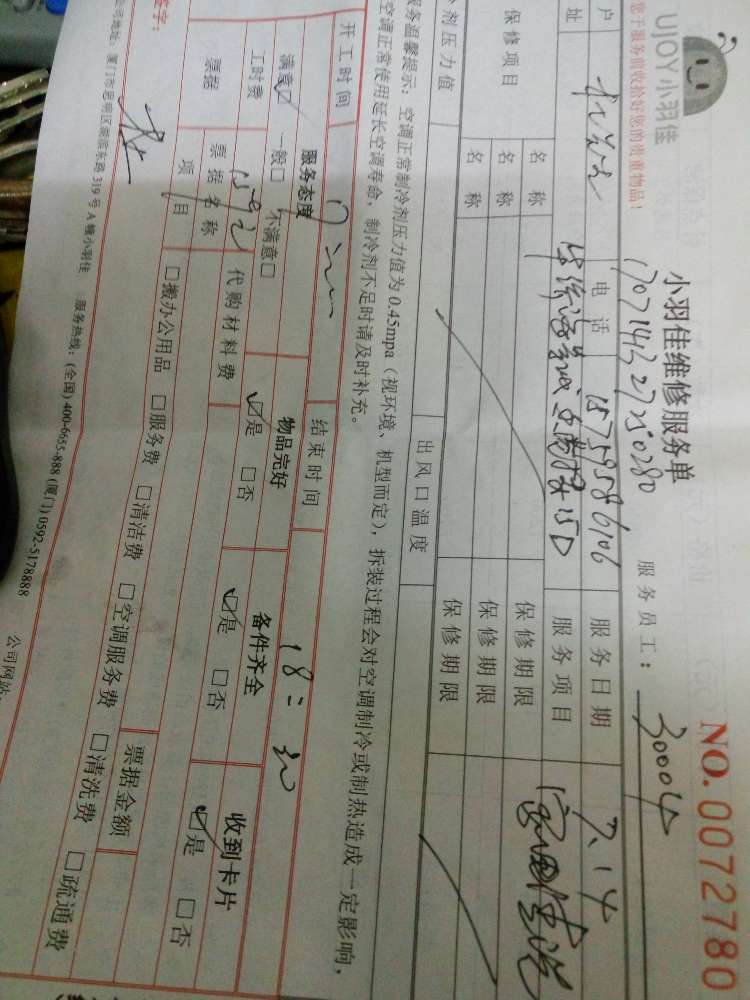 UJOY小羽佳
小羽佳维修服务单
NO.0072780
您于服务前收拾好您的贵重物品!
17071432750780
服务员工:
30004
户
电话
15759586106
服务日期
7.14
址
15D
服务项目
保修项目
名称
保修期限
名称
保修期限
名称
保修期限
剂压力值
出风口温度
服务温馨提示: 空调正常制冷剂压力值为0.45mpa(视环境、机型而定), 拆装过程会对空调制冷或制热造成一定影响,
空调正常使用延长空调寿命, 制冷剂不足时请及时补充。
开工时间
17:
结束时间
18:20
服务态度
物品完好
备件齐全
收到卡片
满意☑ 一般□ 不满意□
☑是 □否
☑是 □否
☑是 □否
工时费
159元
代购材料费
票据
票据名称
票据金额
项目
□搬办公用品 □服务费 □清洁费 □空调服务费 □清洗费 □疏通费
签字:
公司地址: 厦门市思明区湖滨东路319号A幢小羽佳 服务热线: (全国) 400-6655-888 (厦门) 0592-5178888
公司网站: